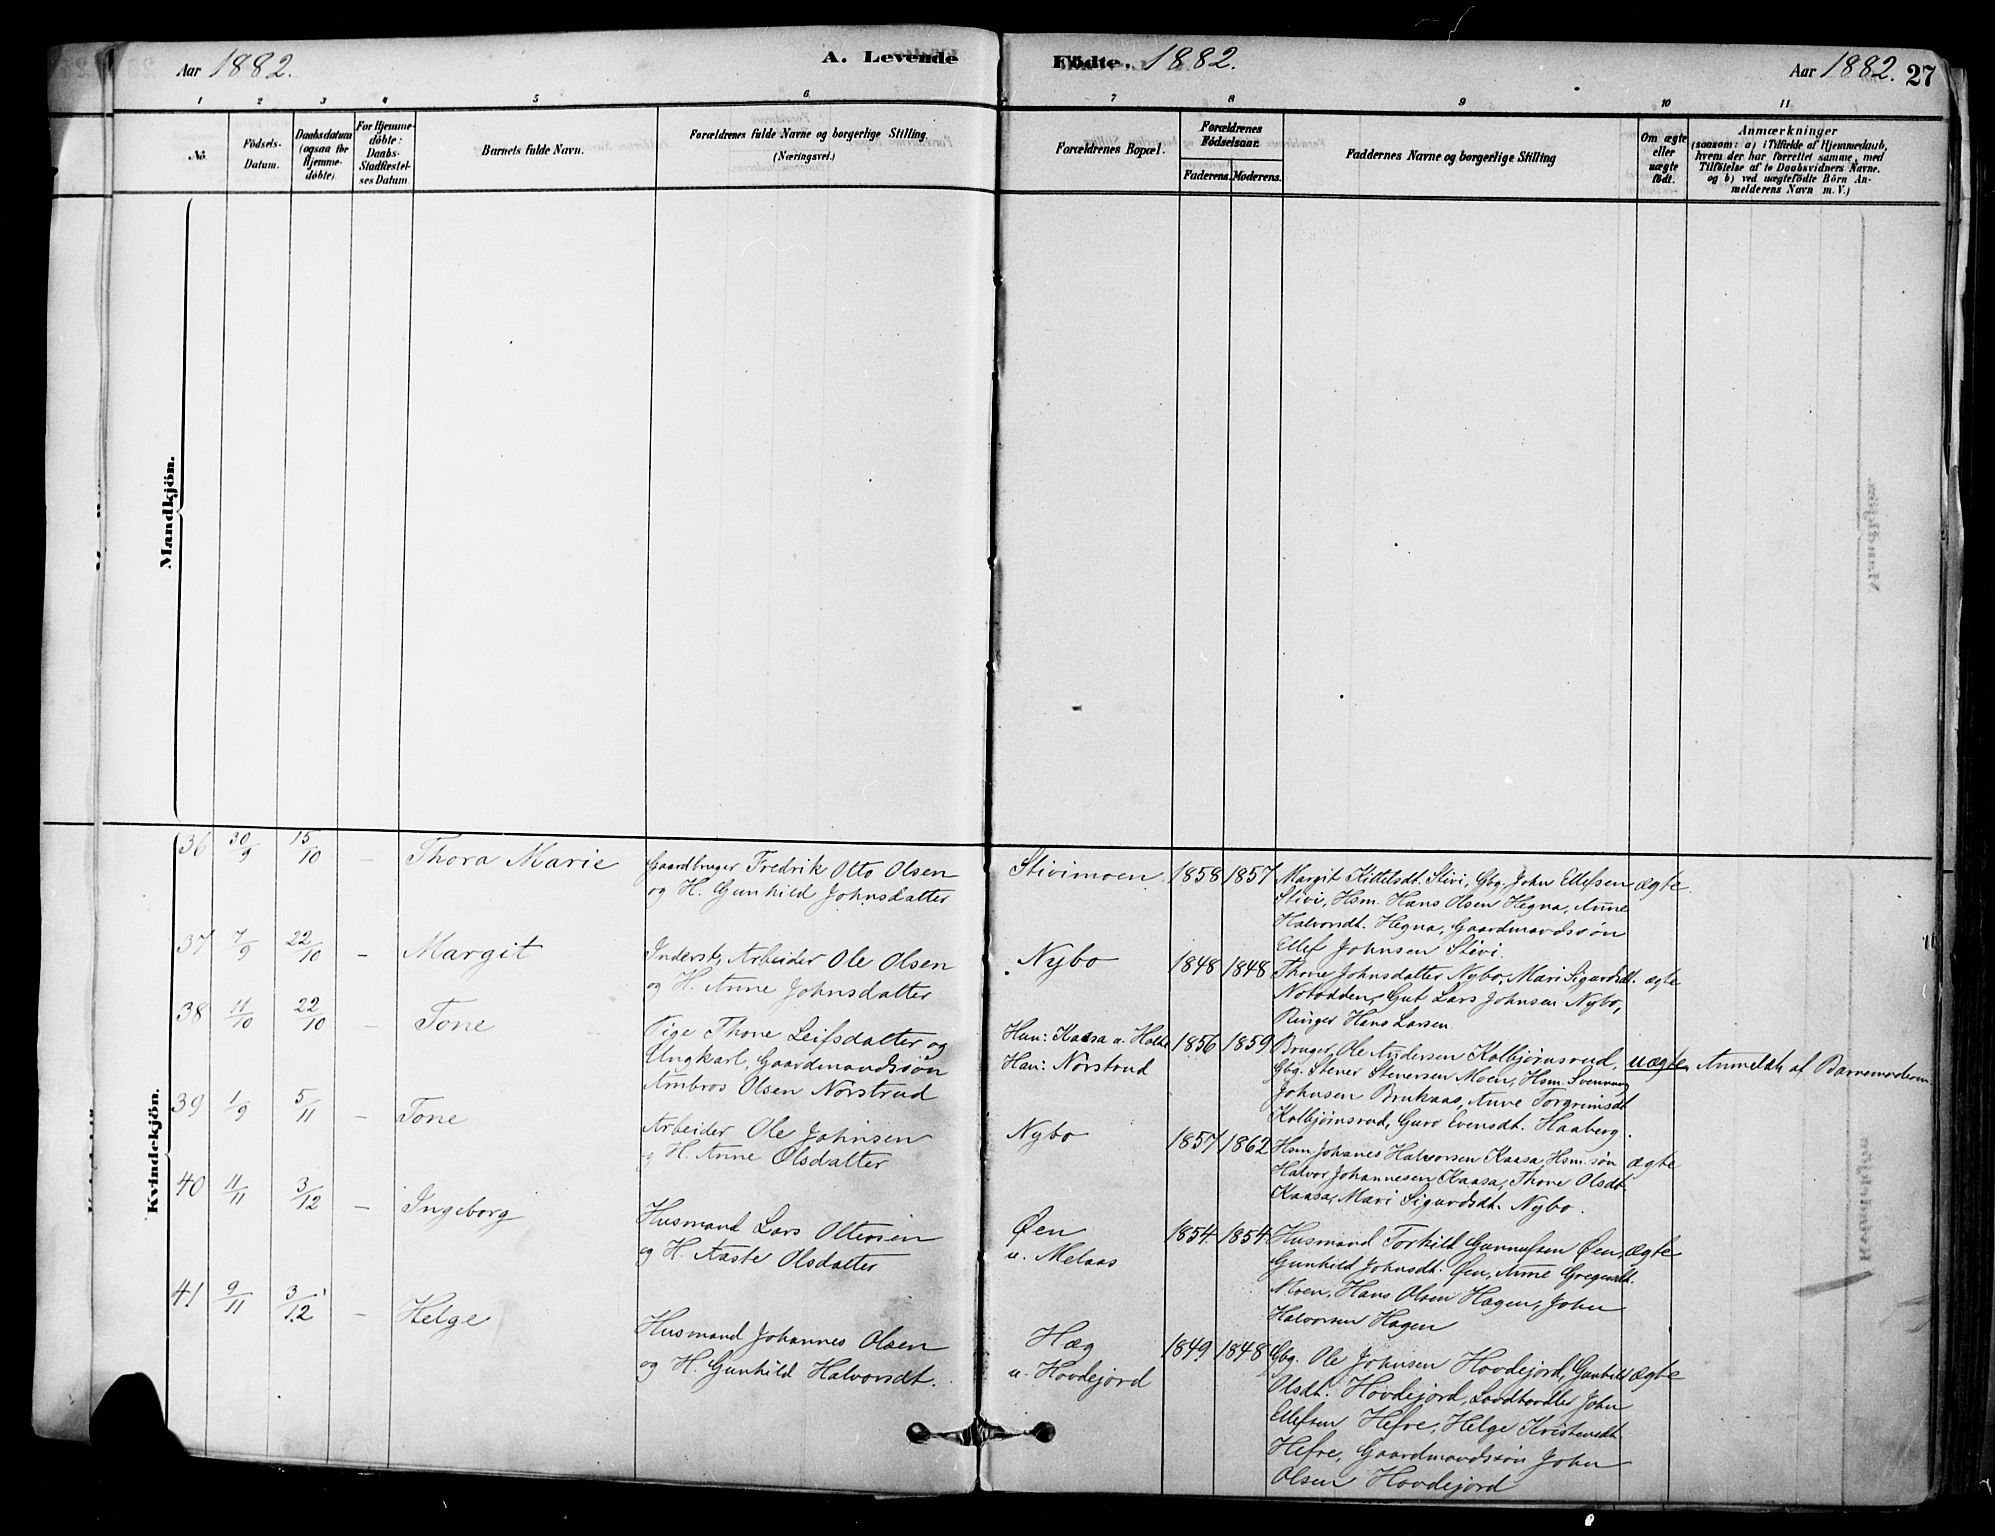 Aar 1882. A. Levende Fødte. 1882. Aar 1882. 27
1 2 3 4 5 6 7 8 9 10 11
No.
Födsels-
Datum.
Daabsdatum
(ogsaa for
Hjemme-
döbte).
For Hjemme-
döbte:
Daabs-
Stadfæstel-
ses Datum.
Barnets fulde Navn.
Forældrenes fulde Navne og borgerlige Stilling.
(Næringsvei.)
Forældrenes Bopæl.
Forældrenes
Födselsaar.
Faderens. Moderens.
Faddernes Navne og borgerlige Stilling
Om ægte
eller
uægte
födt.
Anmærkninger
(saasom: a) i Tilfælde af Hjemmedaab,
hvem der har forrettet samme, med
Tilföielse af to Daabsvidners Navne.
og b) ved uægtefödte Börn An-
melderens Navn m. V.)
Mandkjön.
Kvindekjön.
36 30/9 15/10 – Thora Marie
Gaardbruger Fredrik Otto Olsen
og H. Gunhild Johnsdatter
Stivimoen 1858 1857
Margit Kittilsdt. Stivi, Gbg. John Ellefsen
Stivi, Hsm. Hans Olsen Hegna, Anne
Halvorsdt. Hegna, Gaardmandssøn
Ellef Johnsen Stivi.
ægte.
37 7/9 22/10 – Margit
Inderst, Arbeider Ole Olsen
og H. Anne Johnsdatter
Nybo 1848 1848
Thone Johnsdatter Nybo, Mari Sigurdsdt.
Notodden, Gut Lars Johnsen Nybo,
Ringer Hans Larsen.
ægte
38 11/10 22/10 – Tone
Pige Thone Leifsdatter og
Ungkarl, Gaardmandssøn
Ambros Olsen Norstrud
Hun: Kaasa u. Holte
Han: Norstrud
1856 1859
Bruger Ole Andersen Kolbjørnsrud,
Gbg. Stener Stenersen Moen, Hsm. Svennung
Johnsen Brukaas, Anne Torgrimsdt.
Kolbjørnsrud, Guro Evensdt. Haaberg.
uægte. Anmeldt af Barnemoderen
39 1/9 5/11 – Tone
Arbeider Ole Johnsen
og H. Anne Olsdatter
Nybo 1857 1862
Hsm. Johanes Halvorsen Kaasa, Hsm.søn
Halvor Johannesen Kaasa, Thone Olsdt.
Kaasa, Mari Sigurdsdt. Nybo.
ægte
40 11/11 3/12 – Ingeborg
Husmand Lars Ottersen
og H. Aaste Olsdatter
Øen
u. Melaas
1854 1854
Husmand Torkild Gunnufsen Øen,
Gunhild Johnsdt. Øen, Anne Gregersdt.
Moen, Hans Olsen Hagen, John
Halvorsen Hagen
ægte
41 9/11 3/12 – Helge
Husmand Johannes Olsen
og H. Gunhild Halvorsdt.
Hæg
u. Hovdejord
1849 1848
Gbg. Ole Johnsen Hovdejord, Gunhild
Olsdt. Hovdejord, Landhandler John
Ellefsen Hefre, Helge Kristensdt.
Hefre, Gaardmandssøn John
Olsen Hovdejord
ægte